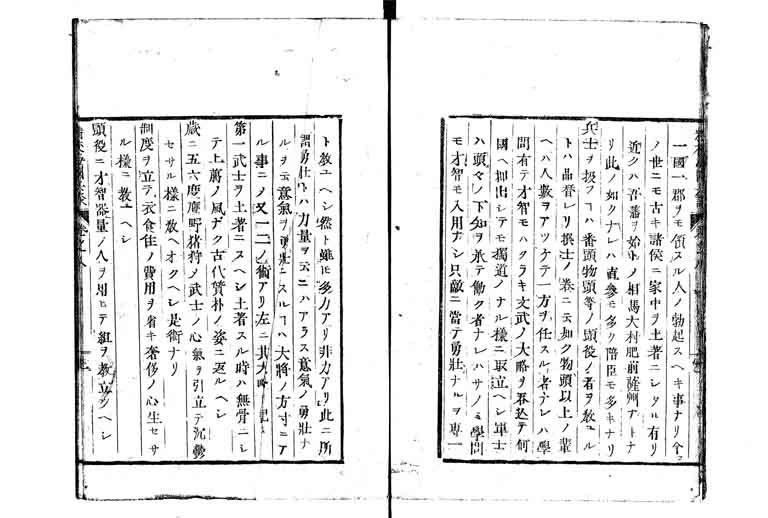 一國一郡ヲモ領スル人ノ勃起スヘキ事ナリ今
ノ世ニモ古キ諸侯ニ家中ヲ土著ニシタル有リ
近クハ吾藩ヲ始トノ相馬大村肥前薩州アトナ
リ此ノ如クナレハ直參モ多ク陪臣モ多キナリ
兵士ヲ扱フヿハ番頭物頭等ノ頭役ノ者ヲ教ユル
トハ品替レリ撰士ノ卷ニ云如ク物頭以上ノ輩
ヘハ人數ヲアツケテ一方ヲ任スル者ナレハ學
問有テ才智モハタラキ文武ノ大略ヲ吞込テ何
國ヘ押出シテモ獨道ノナル樣ニ取立ヘシ軍士
ハ頭々ノ下知ヲ承テ働ク者ナレハサノミ學問
モ才智モ入用ナシ只敵ニ當テ勇壯ナルヲ專一
ト教ユヘシ然ト雖モ多力アリ非力アリ此ニ所
謂勇壯トハ力量ヲ云ニハアラス意氣ノ勇壯ナ
ルヲ云意氣ヲ勇壯ニスルヿハ大將ノ方寸ニア
ル事ニノ又一二ノ術アリ左ニ其大略ヲ記ス
第一武士ヲ土著ニスヘシ土著スル時ハ無骨ニシ
テ上﨟ノ風ナク古代質朴ノ姿ニ返ルヘシ
歲ニ五六度鹿野猪狩ノ武士ノ心氣ヲ引立テ沉鬱
セサル樣ニ教ヘオクヘシ是術ナリ
制度ヲ立テ衣食住ノ費用ヲ省キ奢侈ノ心生セサ
ル樣ニ教ユヘシ
頭役ニ才智器量ノ人ヲ用ヒテ組ヲ教立ツヘシ